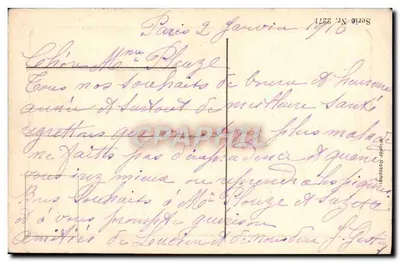 Paris 2 Janvier 1910
Serie Nr. 2271
Chère Mme Plouze
Tous nos souhaits de bonne & heureuse
année & surtout de meilleure santé
regrettons que plus malade
ne faites pas d'imprudence & quand
vous irez mieux on reprendra les piqures
Bons Souhaits à Mr Plouze &
et à vous prompte guérison
amitiés de & de nous deux